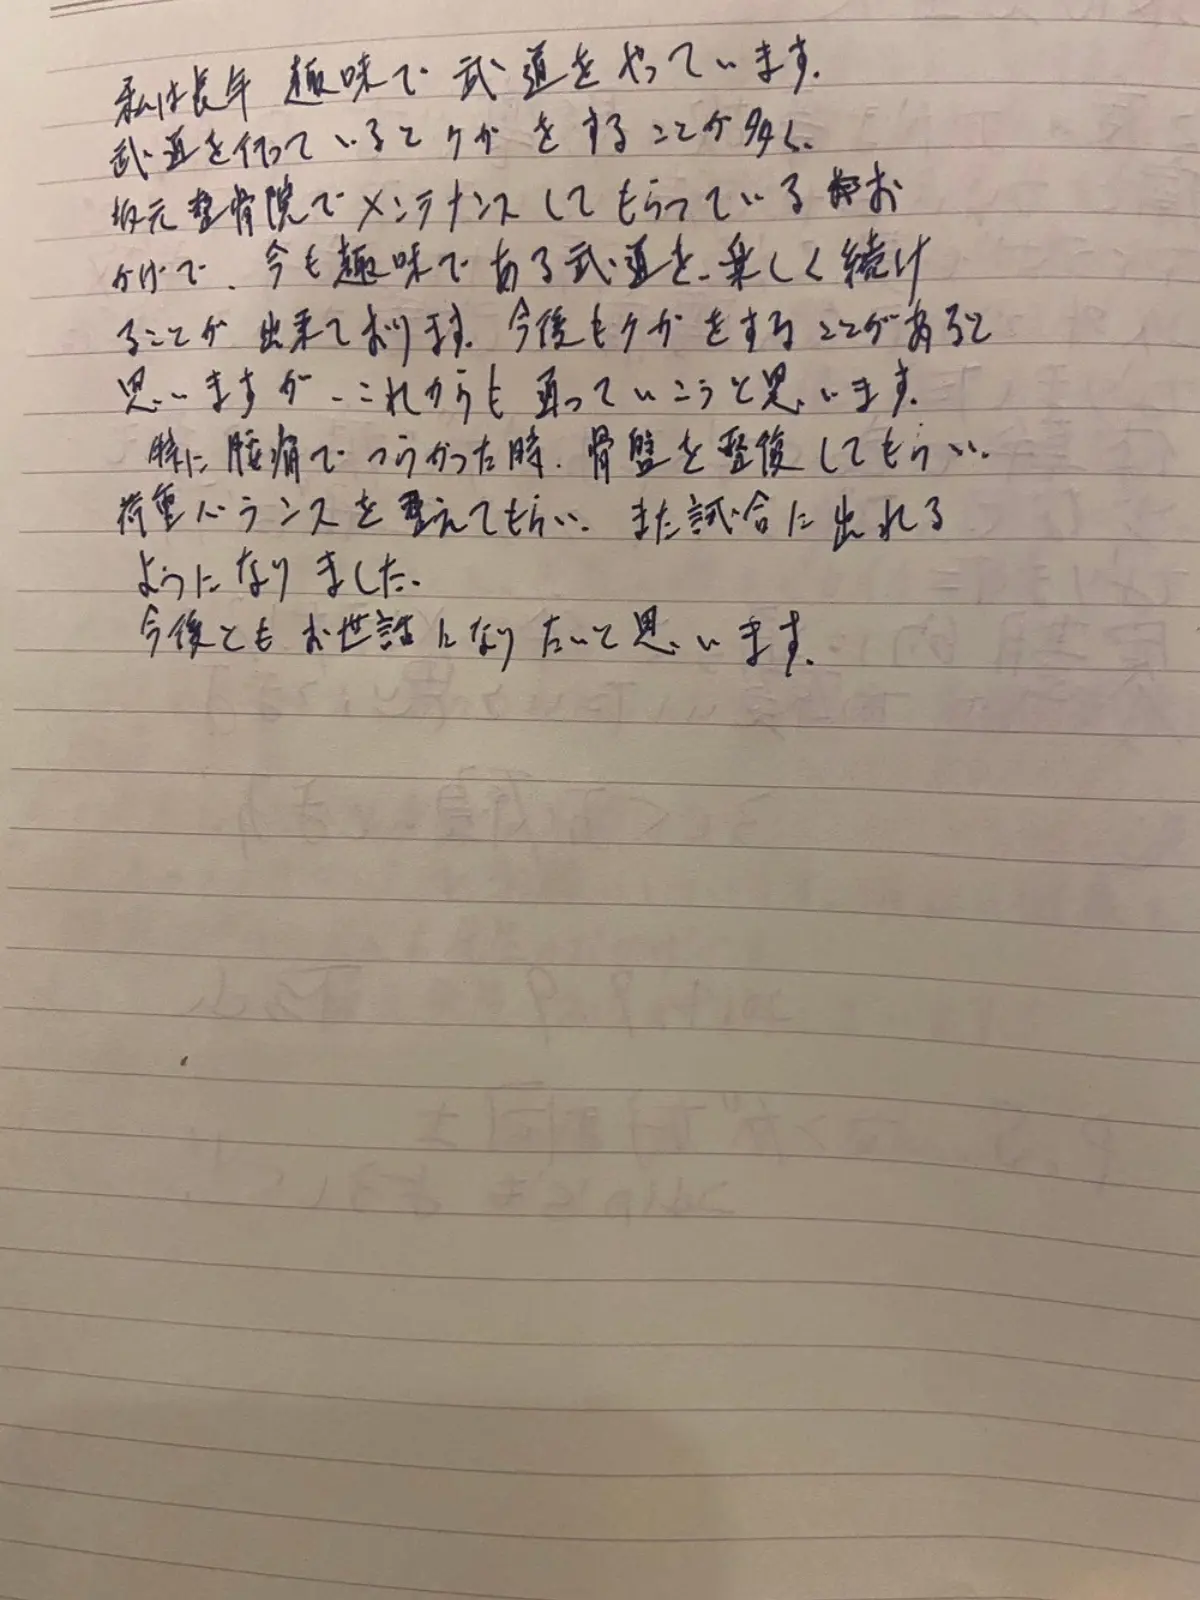 私は長年 趣味で 武道をやっています.
武道を行っていると ケガをすることが多く、
坂元整骨院でメンテナンスしてもらっているお
かげで、今も趣味である武道を、楽しく続け
ることが 出来ております. 今後もケガをすることがあると
思いますが、これからも通っていこうと思います.
特に腰痛で つらかった時、骨盤を整復してもらい、
荷重バランスを整えてもらい、また試合に出れる
ようになりました.
今後とも お世話になりたいと思います.